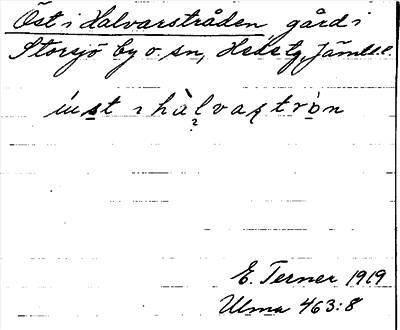 Öst i Halvarstråden, gård i
Storsjö by o. sn, Hedetg, Jämtl.l.
i hàlvaṣtròn
E. Terner 1919
Ulma 463:8